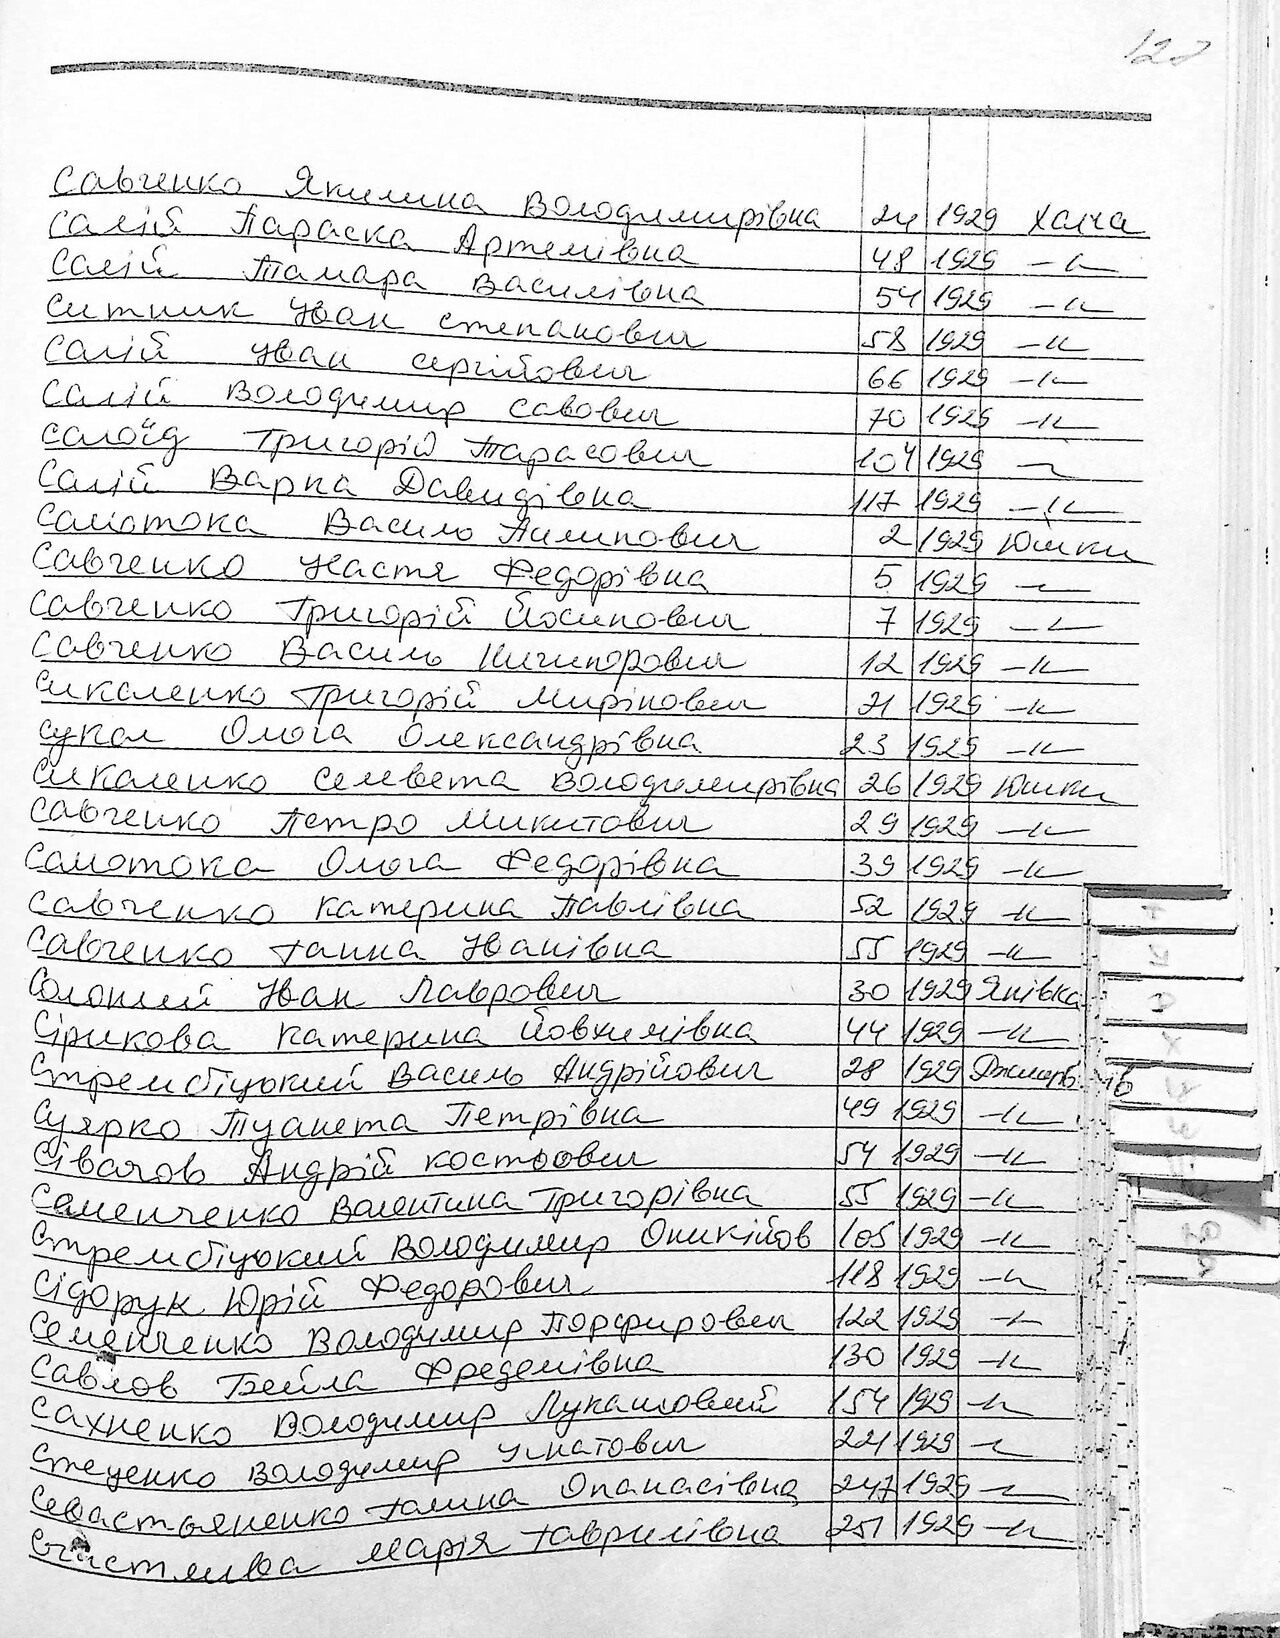 127
Савченко Якилина Володимирівна 24 1929 Халча
Салій Параска Артемівна 48 1929 —"—
Салій Тамара Василівна 54 1929 —"—
Ситник Іван Степанович 58 1929 —"—
Салій Іван Сергійович 66 1929 —"—
Салій Володимир Савович 70 1929 —"—
Салоїд Григорій Тарасович 104 1929 —"—
Салій Варка Давидівна 117 1929 —"—
Самотока Василь Пилипович 2 1929 Юшки
Савченко Настя Федорівна 5 1929 —"—
Савченко Григорій Йосипович 7 1929 —"—
Савченко Василь Ничипорович 12 1929 —"—
Сикаленко Григорій Миронович 21 1929 —"—
Сукал Ольга Олександрівна 23 1929 —"—
Сикаленко Селвета Володимирівна 26 1929 Юшки
Савченко Петро Микитович 29 1929 —"—
Самотока Ольга Федорівна 39 1929 —"—
Савченко Катерина Павлівна 52 1929 —"—
Савченко Ганна Іванівна 55 1929 —"—
Солоний Іван Лаврович 30 1929 Янівка
Сірикова Катерина Йовхимівна 44 1929 —"—
Стрембіцький Василь Андрійович 28 1929
Суярко Туанета Петрівна 49 1929 —"—
Сівачов Андрій Костьович 54 1929 —"—
Саменченко Валентина Григорівна 55 1929 —"—
Стрембіцький Володимир Оникійов 105 1929 —"—
Сідорук Юрій Федорович 118 1929 —"—
Семенченко Володимир Порфирович 122 1929 —"—
Савлов Бейла Фределівна 130 1929 —"—
Сахненко Володимир Лукашовий 154 1929 —"—
Стеценко Володимир Ігнатович 221 1929 —"—
Севастьяненко Галина Опанасівна 247 1929 —"—
Счастлива Марія Гаврилівна 251 1929 —"—